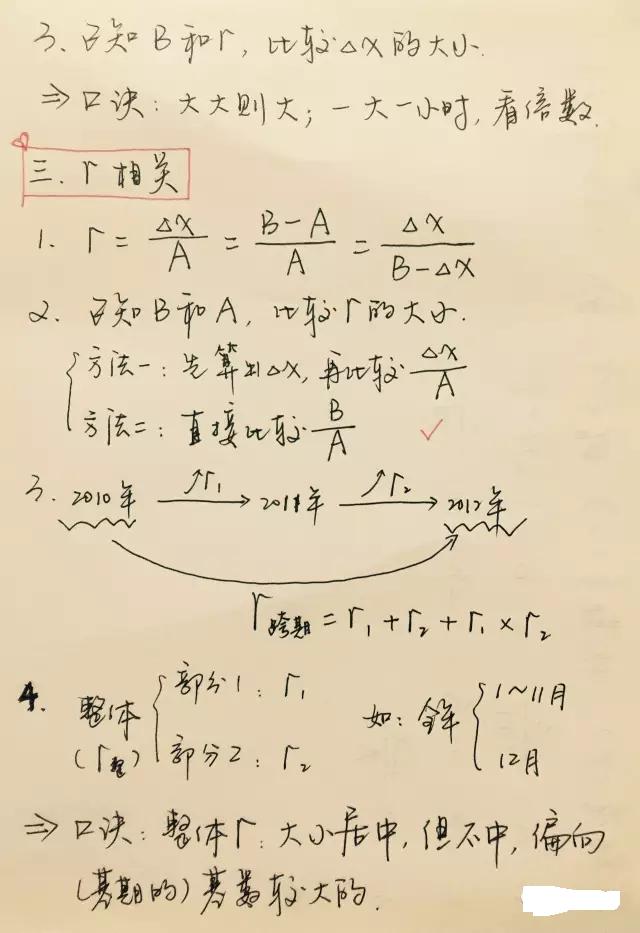 3、已知B和r，比较△x的大小.
⇒ 口诀：大大则大；一大一小时，看倍数.
三. r 相关
1. r = △x/A = (B-A)/A = △x/(B-△x)
2. 已知B和A，比较r的大小.
方法一：先算出△x，再比较 △x/A
方法二：直接比较 B/A ✓
3. 2010年 →(↑r₁) 2011年 →(↑r₂) 2012年
r跨期 = r₁ + r₂ + r₁ × r₂
4. 整体 (r整) { 部分1：r₁ 如：全年 { 1～11月
部分2：r₂ 12月
⇒ 口诀：整体r：大小居中，但不中，偏向
(基期的) 基数较大的.